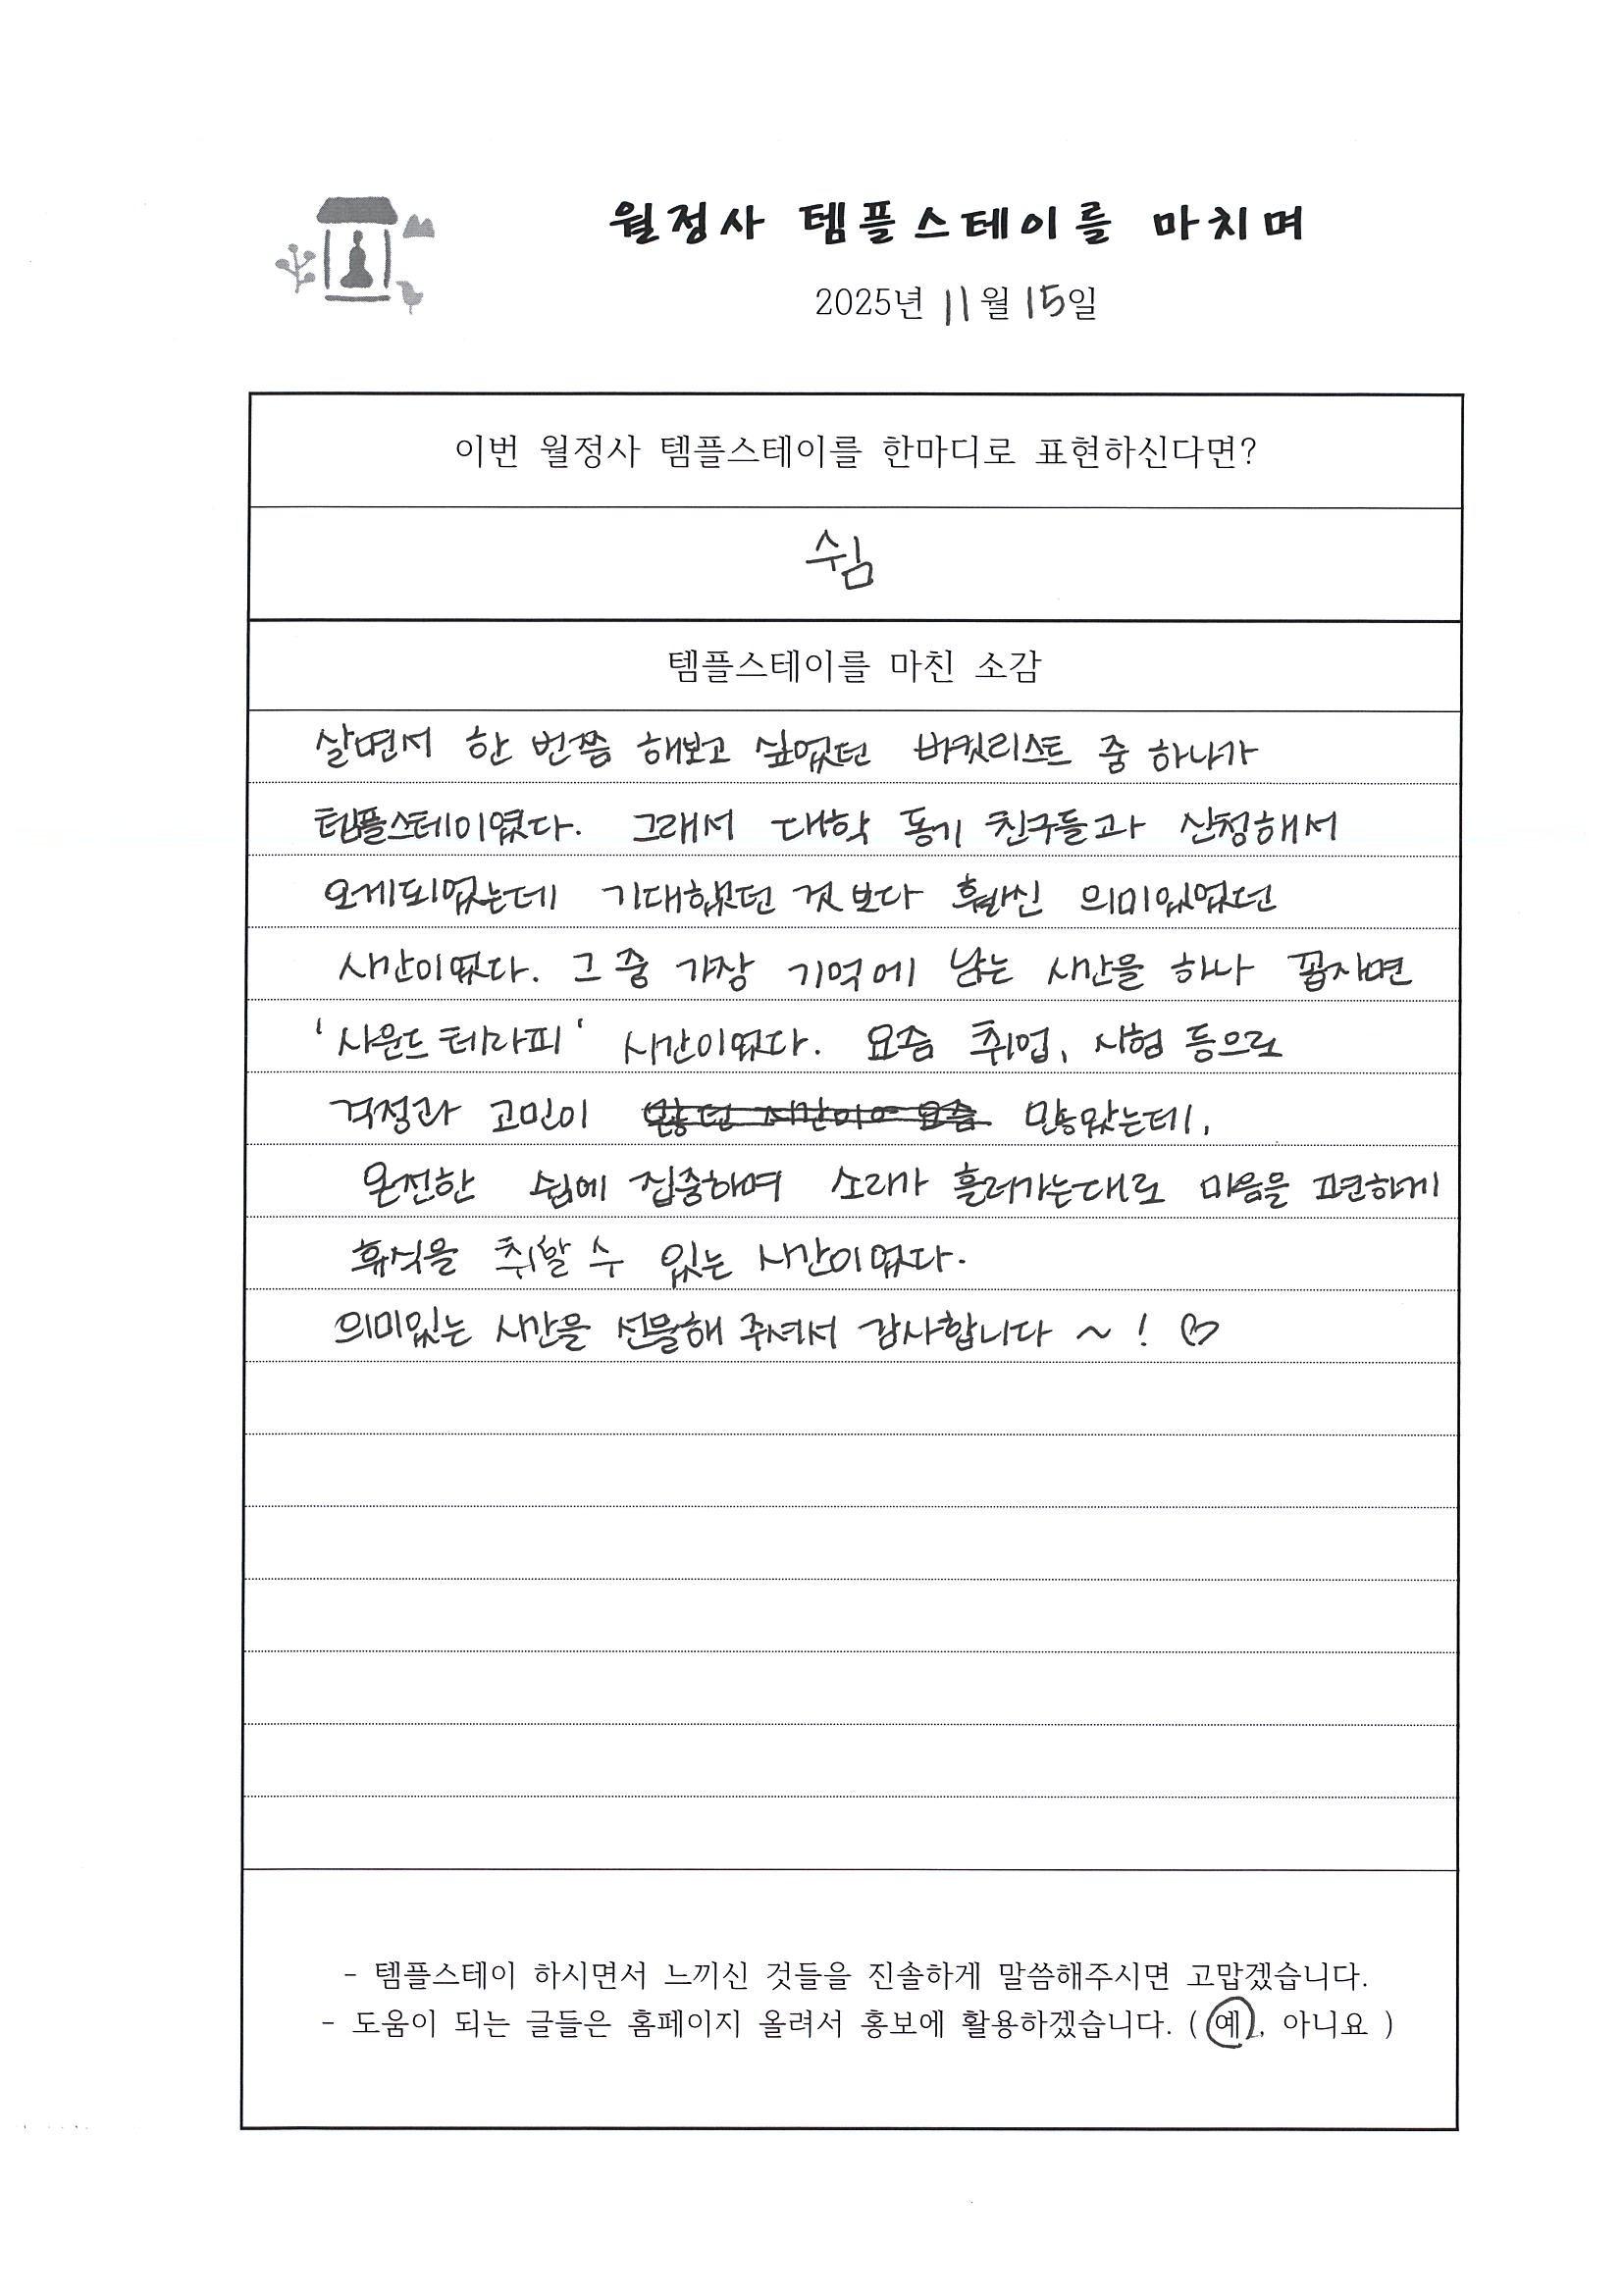 월정사 템플스테이를 마치며
2025년 11월 15일
이번 월정사 템플스테이를 한마디로 표현하신다면?
쉼
템플스테이를 마친 소감
살면서 한 번쯤 해보고 싶었던 버킷리스트 중 하나가
템플스테이였다. 그래서 대학 동기 친구들과 신청해서
오게되었는데 기대했던 것 보다 훨씬 의미있었던
시간이었다. 그 중 가장 기억에 남는 시간을 하나 꼽자면
'사운드 테라피' 시간이었다. 요즘 취업, 시험 등으로
걱정과 고민이 많았는데,
온전한 쉼에 집중하며 소리가 흘러가는대로 마음을 편하게
휴식을 취할 수 있는 시간이었다.
의미있는 시간을 선물해 주셔서 감사합니다 ~ ! ♡
- 템플스테이 하시면서 느끼신 것들을 진솔하게 말씀해주시면 고맙겠습니다.
- 도움이 되는 글들은 홈페이지 올려서 홍보에 활용하겠습니다. ( 예, 아니요 )